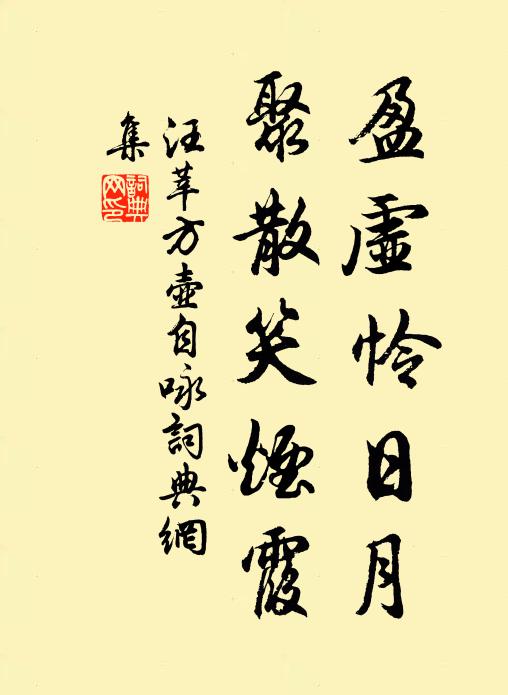 盈虛怜日月
聚散笑煙霞
汪莘方壺自咏詞典網
集
詞典网印